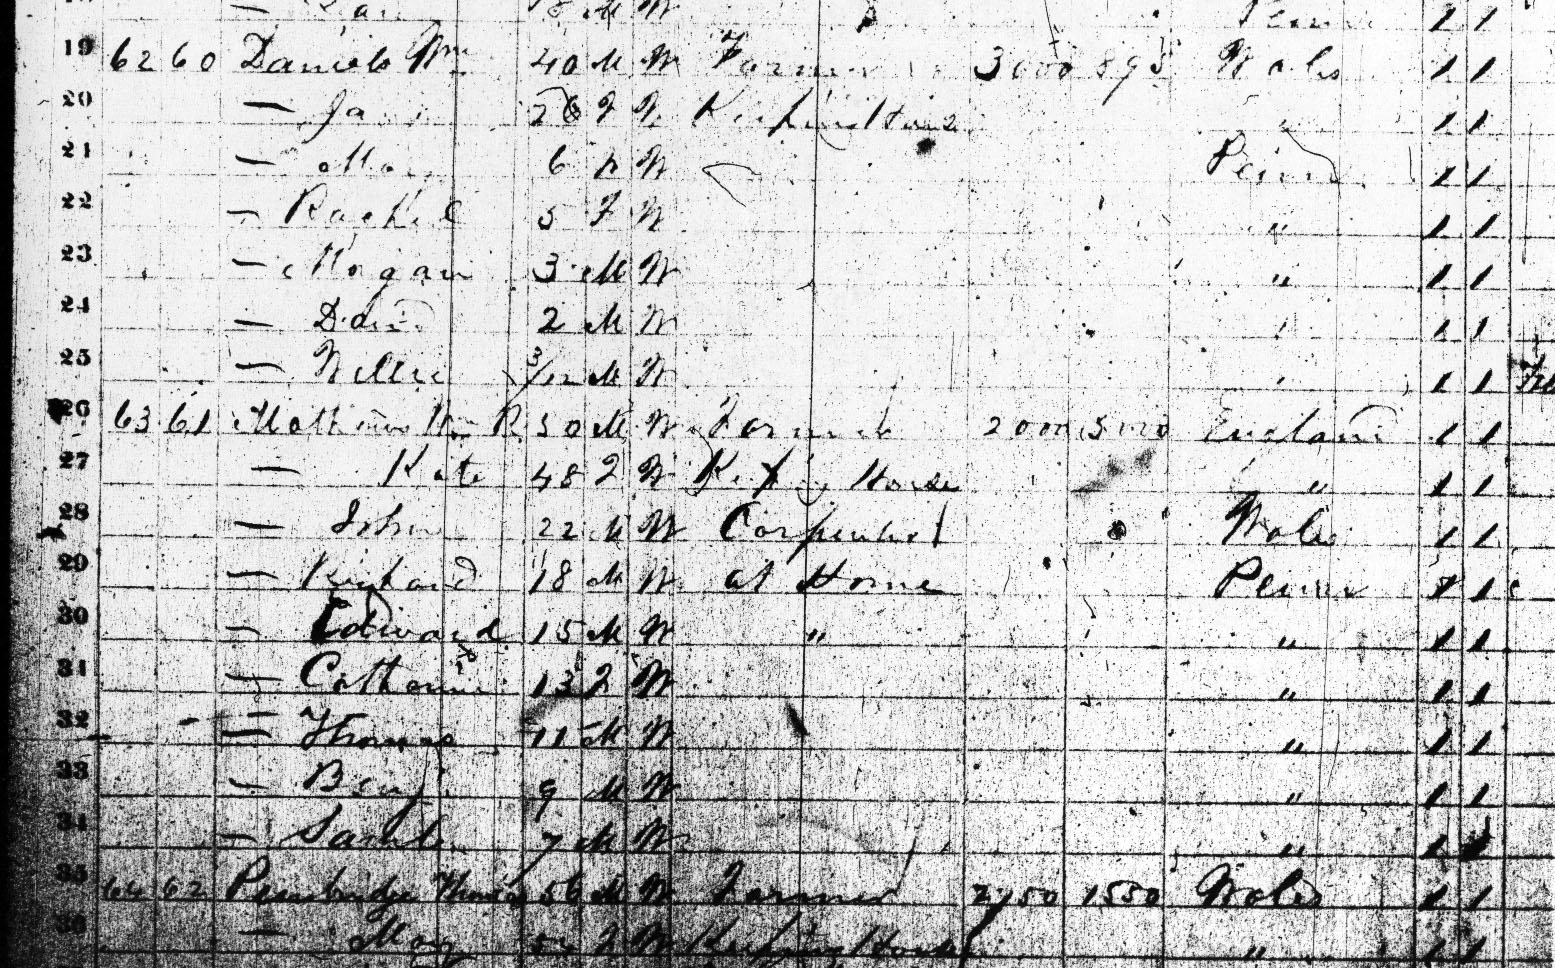 18 M W Penn 1 1
19 62 60 Daniels Wm 40 M W Farmer 3000 895 Wales 1 1
20 — Jane 26 F W Keeping House " 1 1
21 — 6 W Penn 1 1
22 — Rachel 5 F W " 1 1
23 — Morgan 3 M W " 1 1
24 — David 2 M W " 1 1
25 — Willie 3/12 M W " 1 1
26 63 61 Mathews Wm R 50 M W Farmer 2000 England 1 1
27 — Kate 48 F W Keeping House " 1 1
28 — John 22 M W Carpenter Wales 1 1
29 — Richard 18 M W at Home Penn 1 1
30 — Edward 15 M W " " 1 1
31 — Catherine 13 F W " 1 1
32 — Thomas 11 M W " 1 1
33 — Benj 9 M W " 1 1
34 — Saml 7 M W " 1 1
35 64 62 Pembridge Thomas 56 M W Farmer 2750 1550 Wales 1 1
36 — May F W Keeping House " 1 1